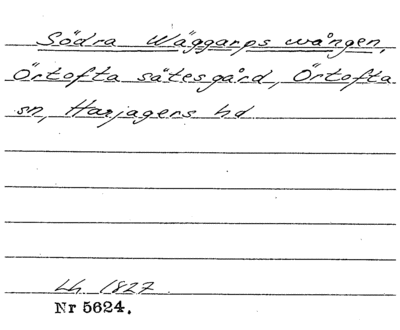 Södra Wäggarps wången,
Örtofta sätesgård, Örtofta
sn, Harjagers hd
Lh 1827
Nr 5624.